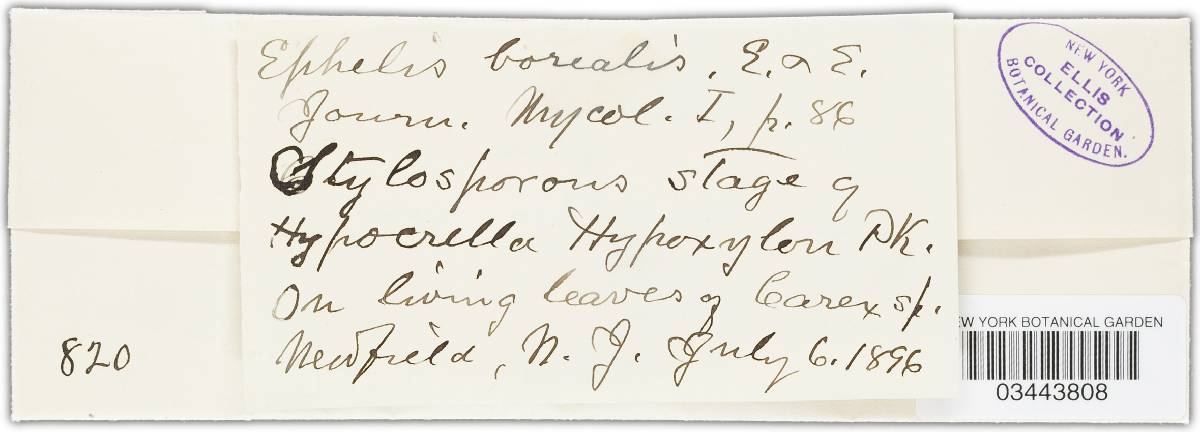 Ephelis borealis, E. & E.
Journ. Mycol. I, p. 86
Stylosporous stage of
Hypocrella Hypoxylon PK.
On living leaves of Carex sp.
Newfield, N. J. July 6. 1896
820
NEW YORK
ELLIS
COLLECTION
BOTANICAL GARDEN.
EW YORK BOTANICAL GARDEN
03443808